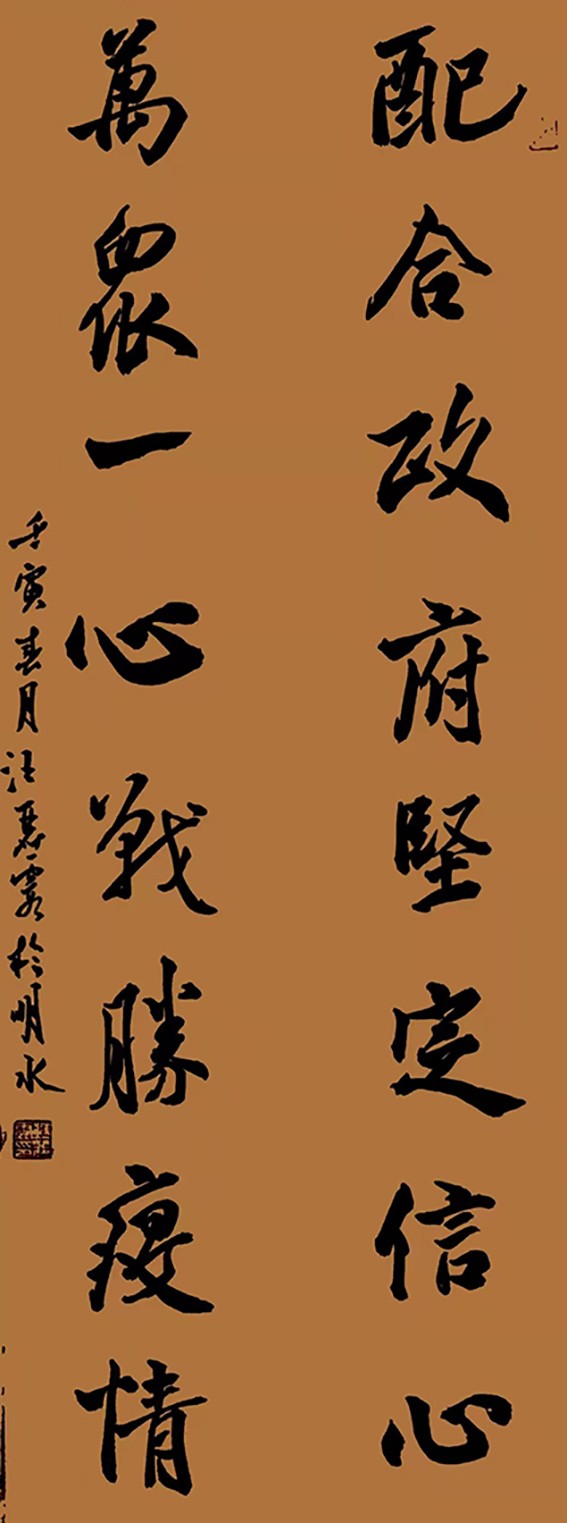 配合政府堅定信心
萬眾一心戰勝疫情
壬寅春月汪愚露於明水